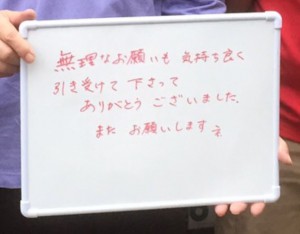 無理なお願いも 気持ち良く
引き受けて 下さって
ありがとう ございました.
また お願いします